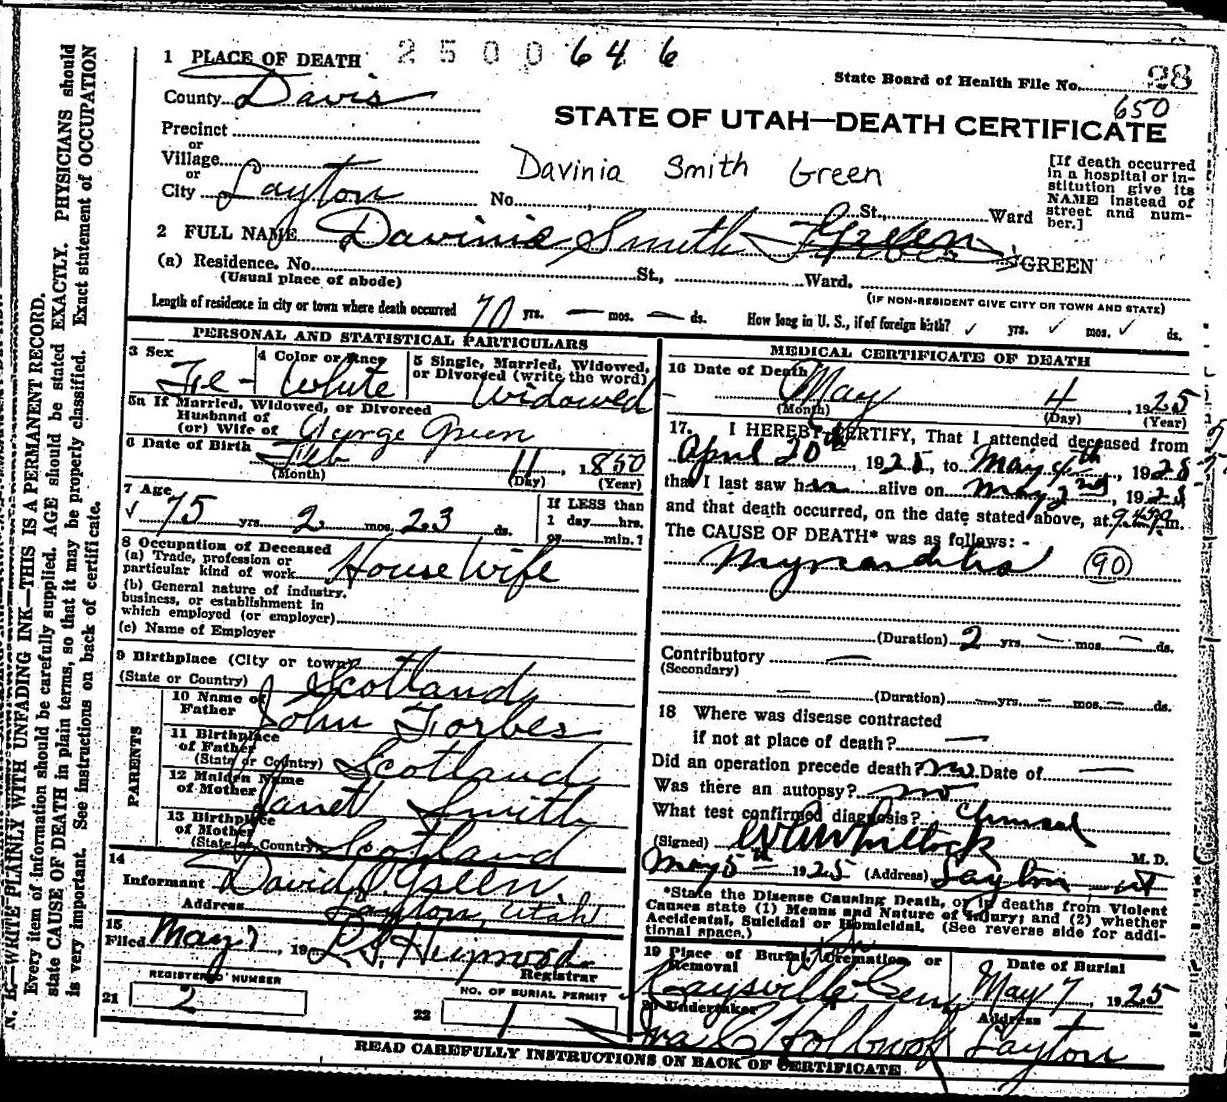 1 PLACE OF DEATH 2 5 0 0 6 4 6
State Board of Health File No. 98
650
County Davis
STATE OF UTAH—DEATH CERTIFICATE
Precinct
or
Village
or
City Layton
Davinia Smith Green
No. St., Ward
[If death occurred in a hospital or institution give its NAME instead of street and number.]
2 FULL NAME Davinia Smith Forbes Green GREEN
(a) Residence. No. St., Ward.
(Usual place of abode)
(IF NON-RESIDENT GIVE CITY OR TOWN AND STATE)
Length of residence in city or town where death occurred 70 yrs. — mos. — ds. How long in U. S., if of foreign birth? ✓ yrs. ✓ mos. ✓ ds.
PERSONAL AND STATISTICAL PARTICULARS
3 Sex Fe-
4 Color or Race White
5 Single, Married, Widowed, or Divorced (write the word) Widowed
5a If Married, Widowed, or Divorced
Husband of
(or) Wife of George Green
6 Date of Birth Feb 11, 1850
(Month) (Day) (Year)
7 Age ✓ 75 yrs. 2 mos. 23 ds.
If LESS than
1 day hrs.
or min.?
8 Occupation of Deceased
(a) Trade, profession or
particular kind of work House Wife
(b) General nature of industry,
business, or establishment in
which employed (or employer)
(c) Name of Employer
9 Birthplace (City or town)
(State or Country) Scotland
PARENTS
10 Name of Father John Forbes
11 Birthplace of Father
(State or Country) Scotland
12 Maiden Name of Mother Janet Smith
13 Birthplace of Mother
(State or Country) Scotland
14
Informant David Green.
Address Layton, Utah
15
Filed May 7, 19 Heywood
Registrar
REGISTERED NUMBER
21 2
NO. OF BURIAL PERMIT
22 1
MEDICAL CERTIFICATE OF DEATH
16 Date of Death May 4, 1925
(Month) (Day) (Year)
17. I HEREBY CERTIFY, That I attended deceased from
April 20th, 1925, to May 4th, 1925
that I last saw her alive on May 2nd, 1925
and that death occurred, on the date stated above, at m.
The CAUSE OF DEATH* was as follows: -
(90)
(Duration) 2 yrs. — mos. — ds.
Contributory —
(Secondary)
— (Duration) yrs. — mos. — ds.
18 Where was disease contracted
if not at place of death? —
Did an operation precede death? no. Date of —
Was there an autopsy? no
What test confirmed diagnosis? Clinical
(Signed) Whitlock M. D.
May 5th 1925 (Address) Layton Ut
*State the Disease Causing Death, or in deaths from Violent
Causes state (1) Means and Nature of Injury; and (2) whether
Accidental, Suicidal or Homicidal. (See reverse side for addi-
tional space.)
19 Place of Burial, Cremation or Removal Utah
Kaysville Cem
Date of Burial
May 7, 1925
20 Undertaker
Ira C Holbrook
Address
Layton
READ CAREFULLY INSTRUCTIONS ON BACK OF CERTIFICATE
N. B.—WRITE PLAINLY WITH UNFADING INK—THIS IS A PERMANENT RECORD.
Every item of information should be carefully supplied. AGE should be stated EXACTLY. PHYSICIANS should
state CAUSE OF DEATH in plain terms, so that it may be properly classified. Exact statement of OCCUPATION
is very important. See instructions on back of certificate.